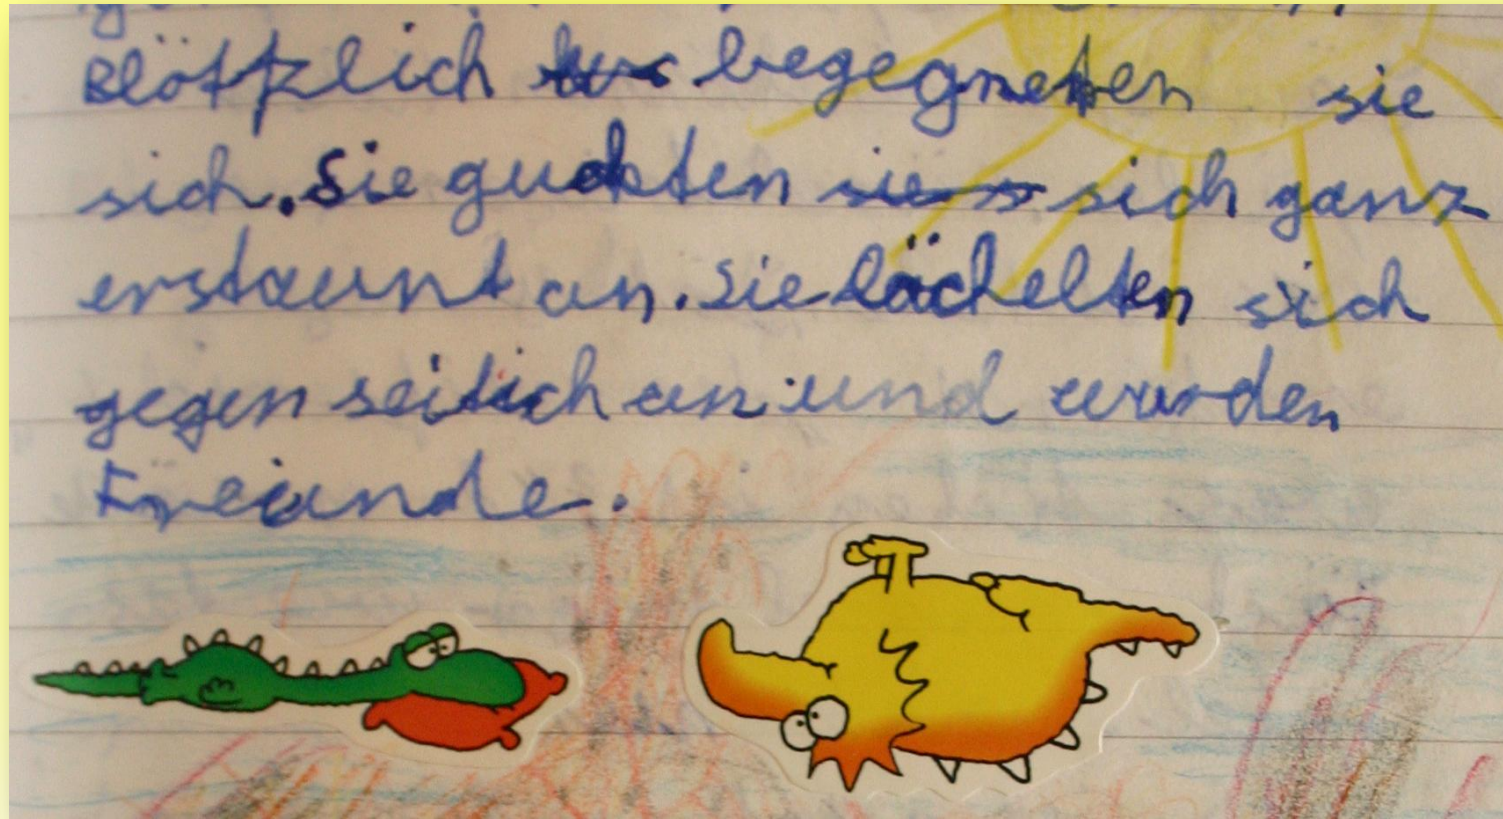 Blötzlich begegneten sie
sich. Sie guckten sich ganz
erstaunt an. Sie lächelten sich
gegen seitich an und wurden
Freunde.